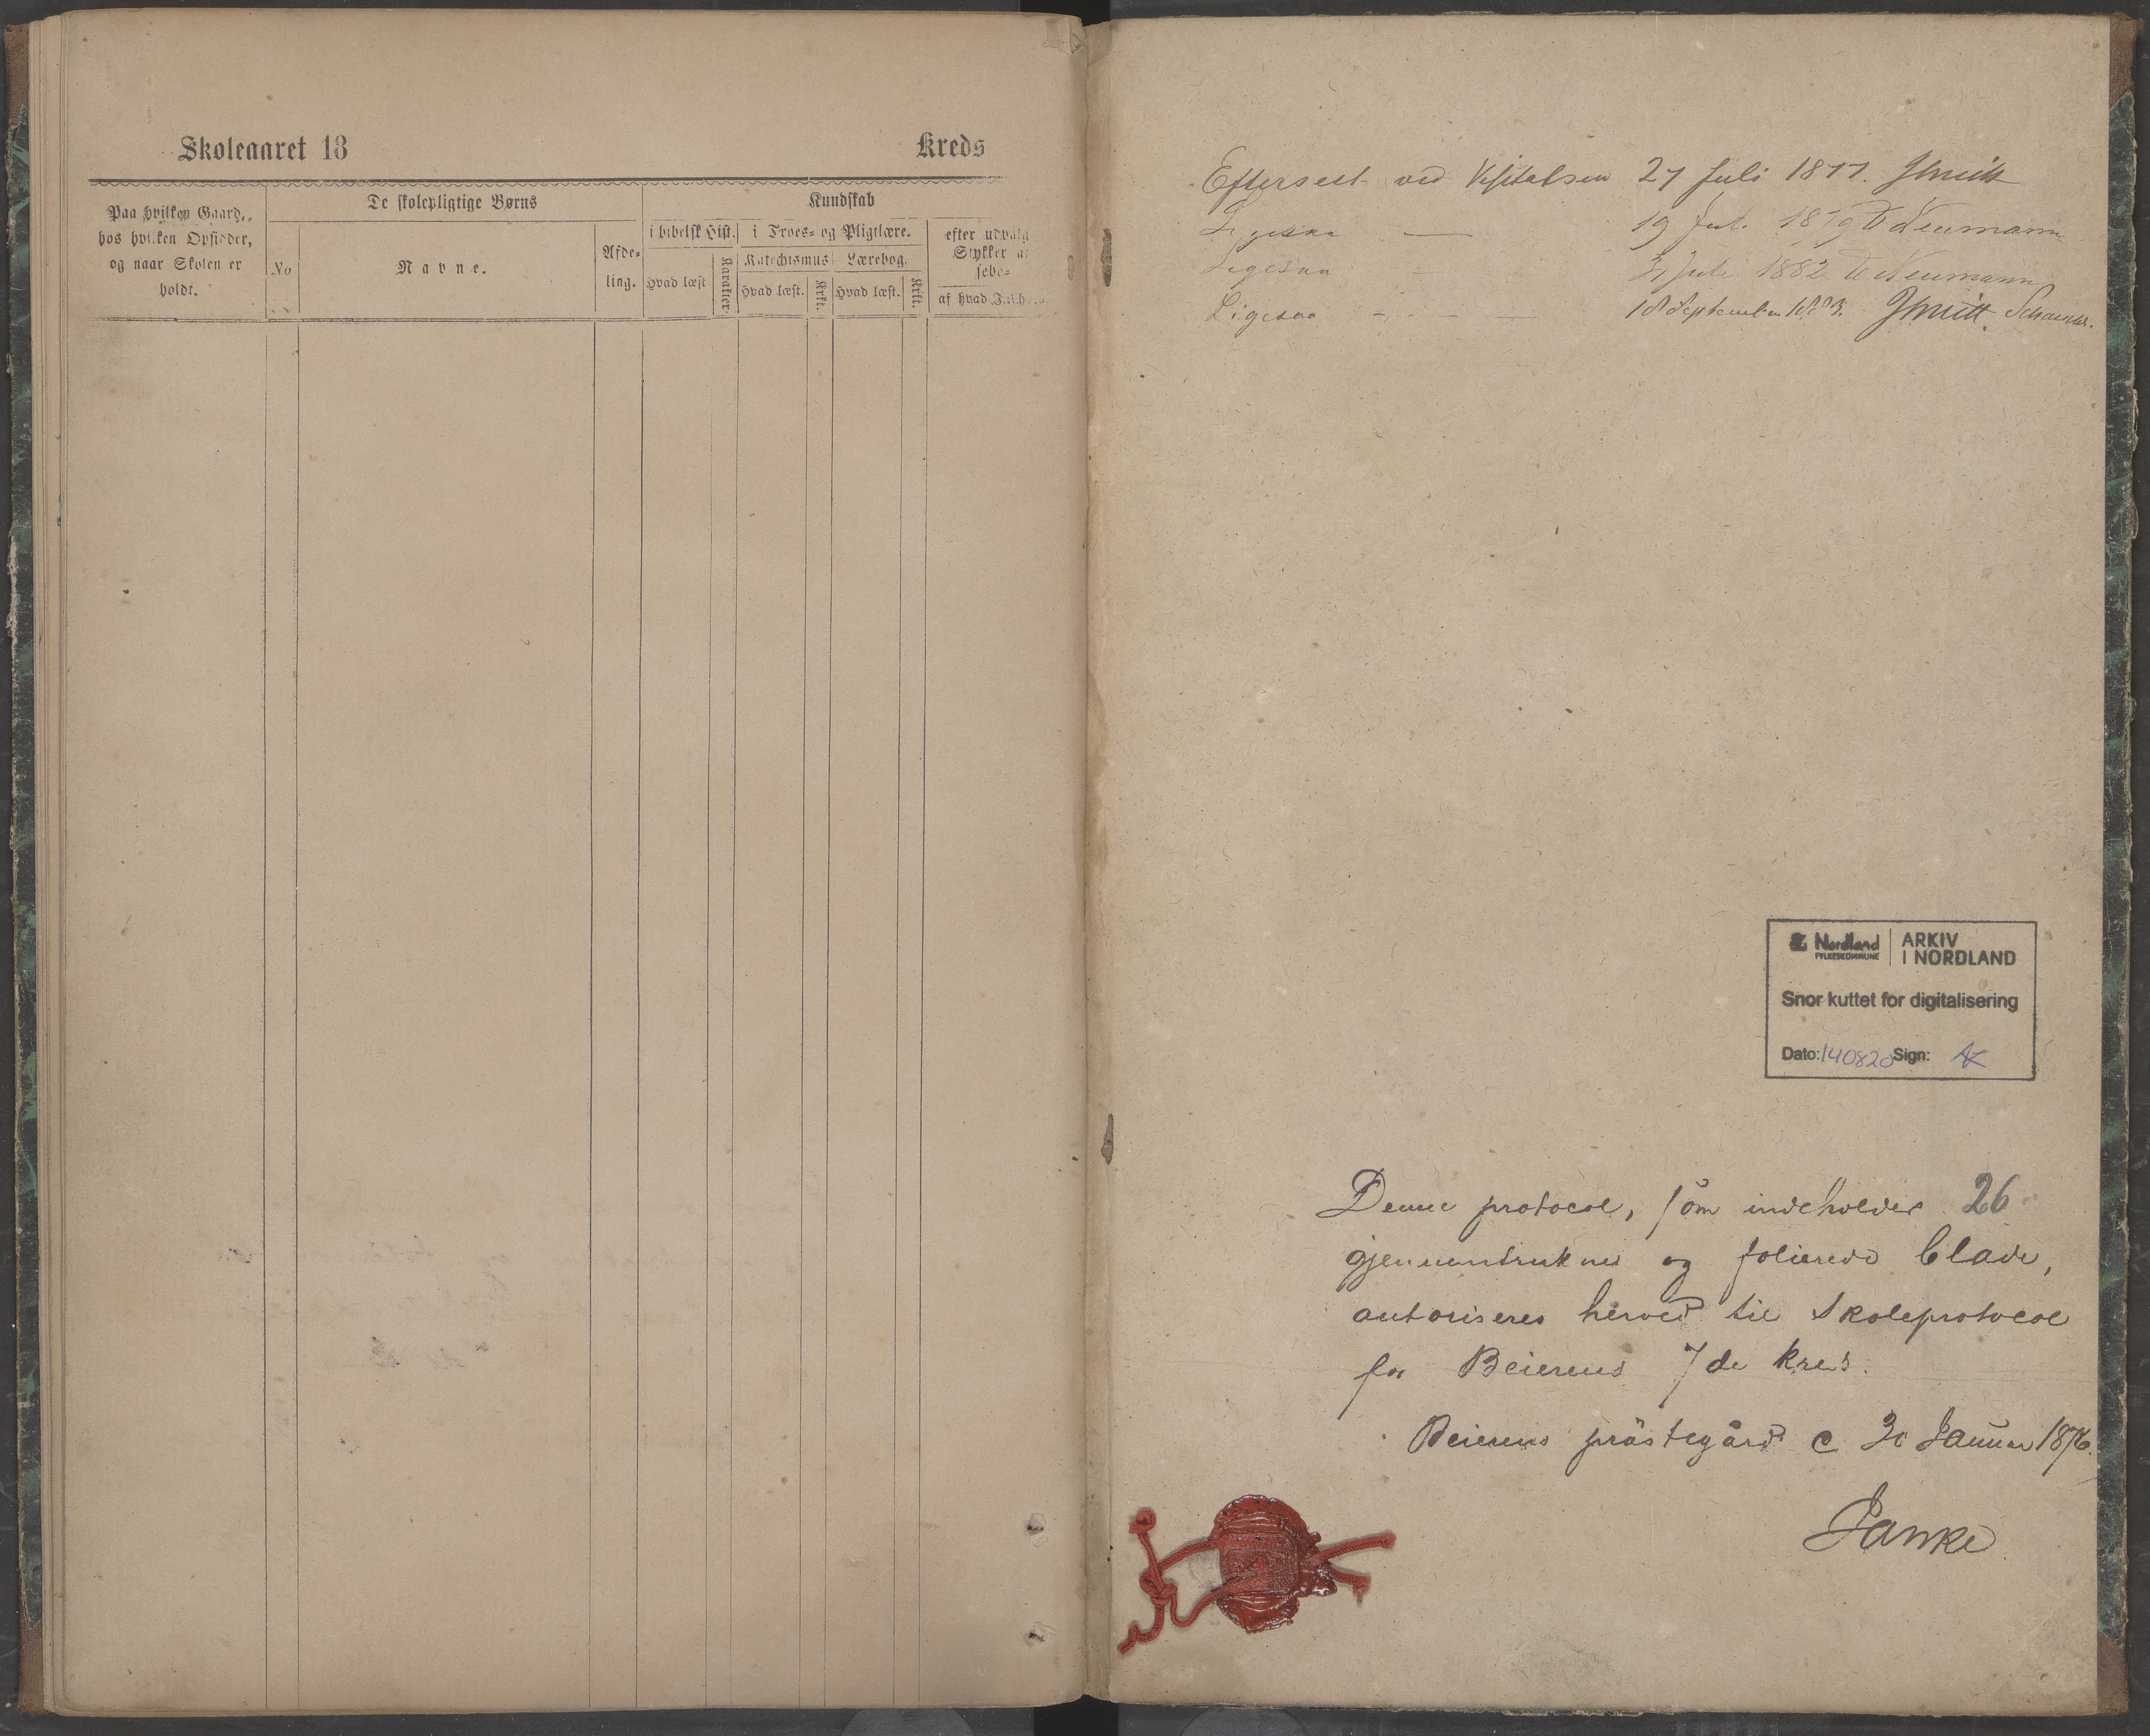 Skoleaaret 18
Kreds
Paa hvilken Gaard,
hos hvilken Opsidder,
og naar Skolen er
holdt.
De skolepligtige Børns
No
Navne.
Afde-
ling.
Kundskab
i bibelsk Hist.
Hvad læst.
Karakter.
i Troes- og Pligtlære.
Katechismus
Lærebog.
Hvad læst.
Krkt.
Hvad læst.
Krkt.
efter udvalg
Stykker af
sebo-
af hvad Indh
Efterseet ved Visitatsen 27 Juli 1877.
Ligesaa — 19 Jul. 1879 Neumann
Ligesaa 31 Juli 1882 Neumann
Ligesaa - - — 18 September 1883.
Nordland
FYLKESKOMMUNE
ARKIV
I NORDLAND
Snor kuttet for digitalisering
Dato: 140820 Sign: AK
Denne protocol, som indeholder 26
gjennemtrukne og folierede blade,
autoriseres herved til Skoleprotocol
for Beierens 7de kreds.
Beierens prästegård d 30 Januar 1876.
Janke